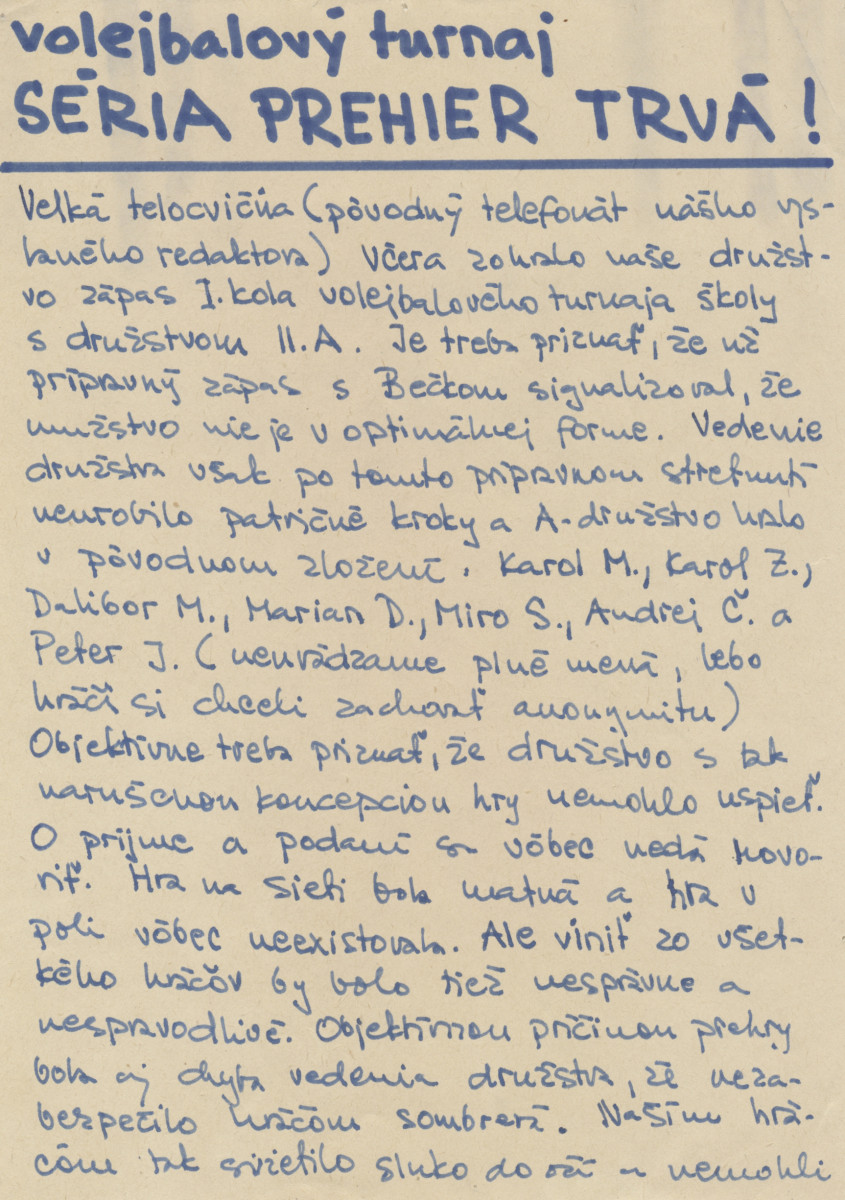 volejbalový turnaj
SÉRIA PREHIER TRVÁ!
Velká telocvičňa (pôvodný telefonát nášho vys-
laného redaktora) Včera zohralo naše družst-
vo zápas I. kola volejbalového turnaja školy
s družstvom II.A. Je treba priznať, že už
prípravný zápas s Bečkom signalizoval, že
mužstvo nie je v optimálnej forme. Vedenie
družstva však po tomto prípravnom stretnutí
neurobilo patričné kroky a A-družstvo hralo
v pôvodnom zložení. Karol M., Karol Z.,
Dalibor M., Marian D., Miro S., Andrej Č. a
Peter J. (neuvádzame plné mená, lebo
hráči si chceli zachovať anonymitu)
Objektívne treba priznať, že družstvo s tak
narušenou koncepciou hry nemohlo uspieť.
O príjme a podaní sa vôbec nedá hovo-
riť. Hra na sieti bola matná a hra v
poli vôbec neexistovala. Ale viniť zo všet-
kého hráčov by bolo tiež nesprávne a
nespravodlivé. Objektívnou príčinou prehry
bola aj chyba vedenia družstva, že neza-
bezpečilo hráčom sombrerá. Našim hrá-
čom tak svietilo slnko do očí a nemohli